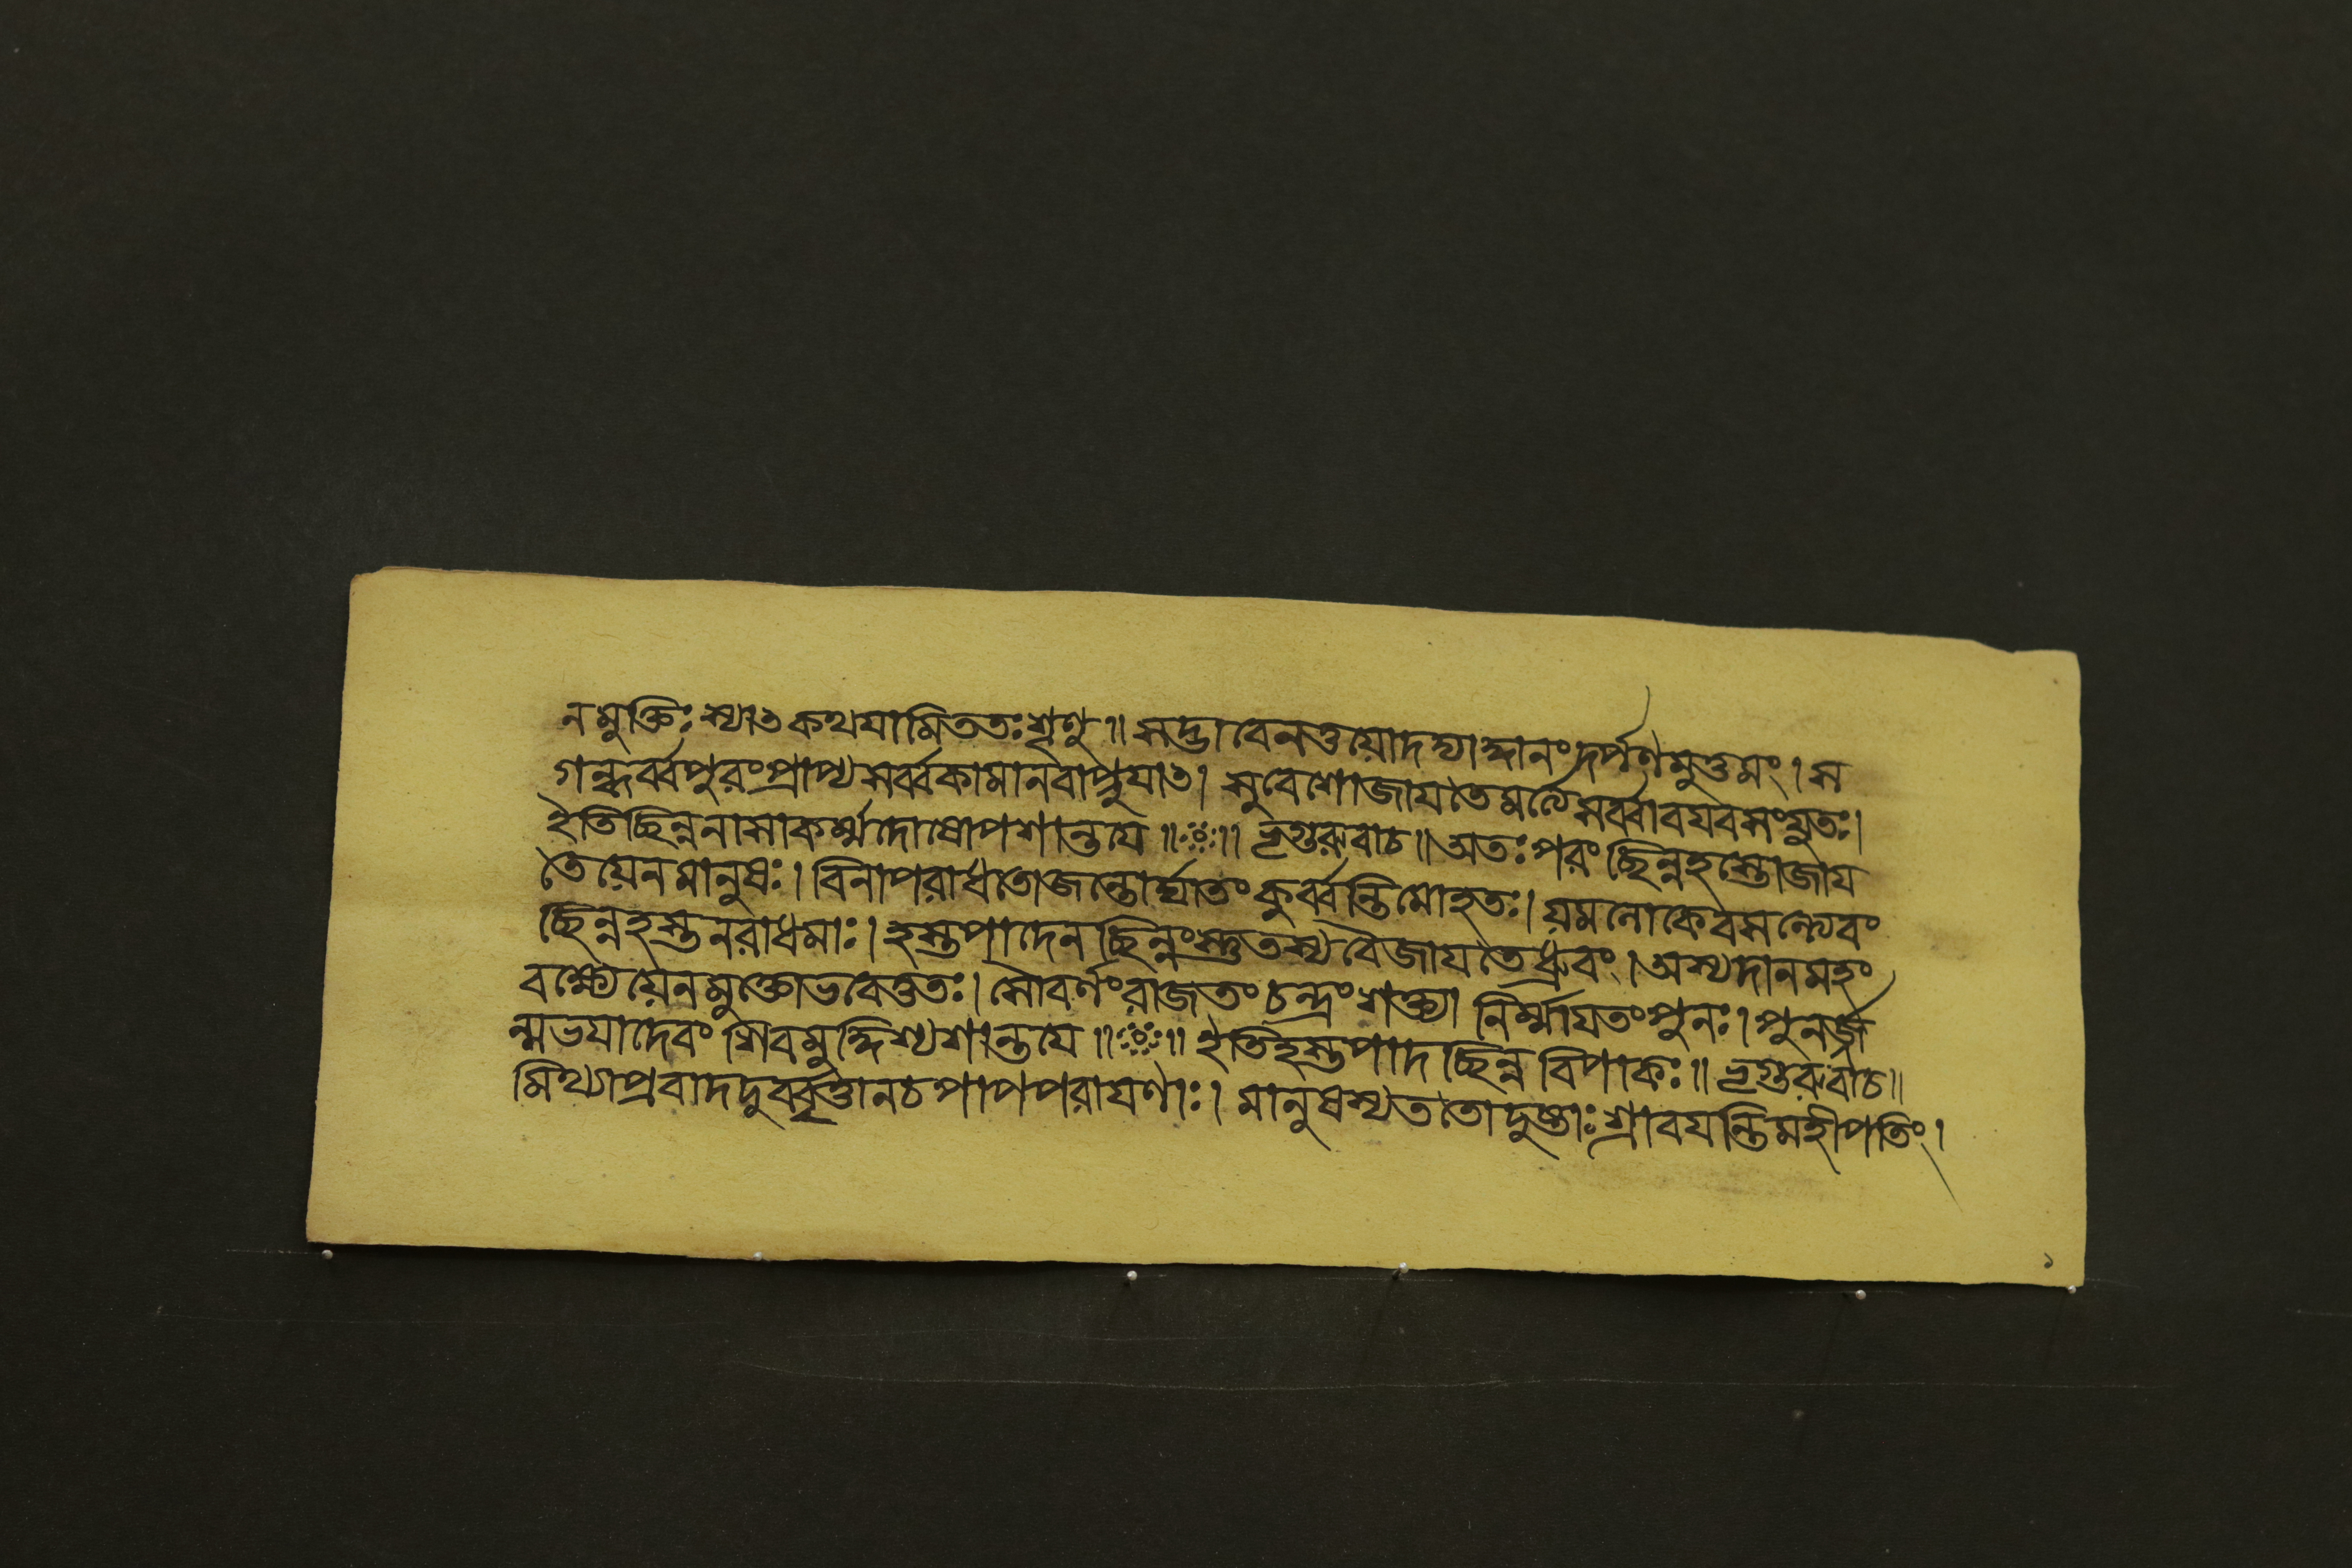 নমুক্তিঃ স্যাৎ কথযামিততঃশৃণু॥ সদ্ভাবেনতুয়োদদ্যাদ্দানংদর্পণমুত্তমং। স
গন্ধর্ব্বপুরংপ্রাপ্যসর্ব্বকামানবাপ্নুযাৎ। সুবেশোজাযতেমর্ত্যেসর্ব্বাবযবসংযুতঃ।
ইতিছিন্ননাসাকর্ম্মদোষোপশান্তযে॥ ॥ ভৃগুরুবাচ॥ অতঃপরং ছিন্নহস্তোজায
তেয়েনমানুষঃ। বিনাপরাধতোজন্তোর্ঘাতংকুর্ব্বন্তিমোহতঃ। য়মলোকেবসন্ত্যেবং
ছিন্নহস্তনরাধমাঃ। হস্তপাদেনছিন্নংস্তুতস্যবৈজাযতেধ্রুবং। অস্যদানমহং
বক্ষ্যেয়েনমুক্তোভবেত্ততঃ। সৌবর্ণংরাজতংচন্দ্রংশক্ত্যা নির্ম্মাযতংপুনঃ। পুনর্জ
ন্মভযাদেবং শিবমুদ্দিশ্যশান্তযে॥ ॥ ইতিহস্তপাদছিন্ন বিপাকঃ॥ ভৃগুরুবাচ॥
মিথ্যাপ্রবাদদুর্ব্বৃত্তানচপাপপরাযণাঃ। মানুষস্যততোদুষ্টাঃশ্রাবযন্তিমহীপতিং।
১